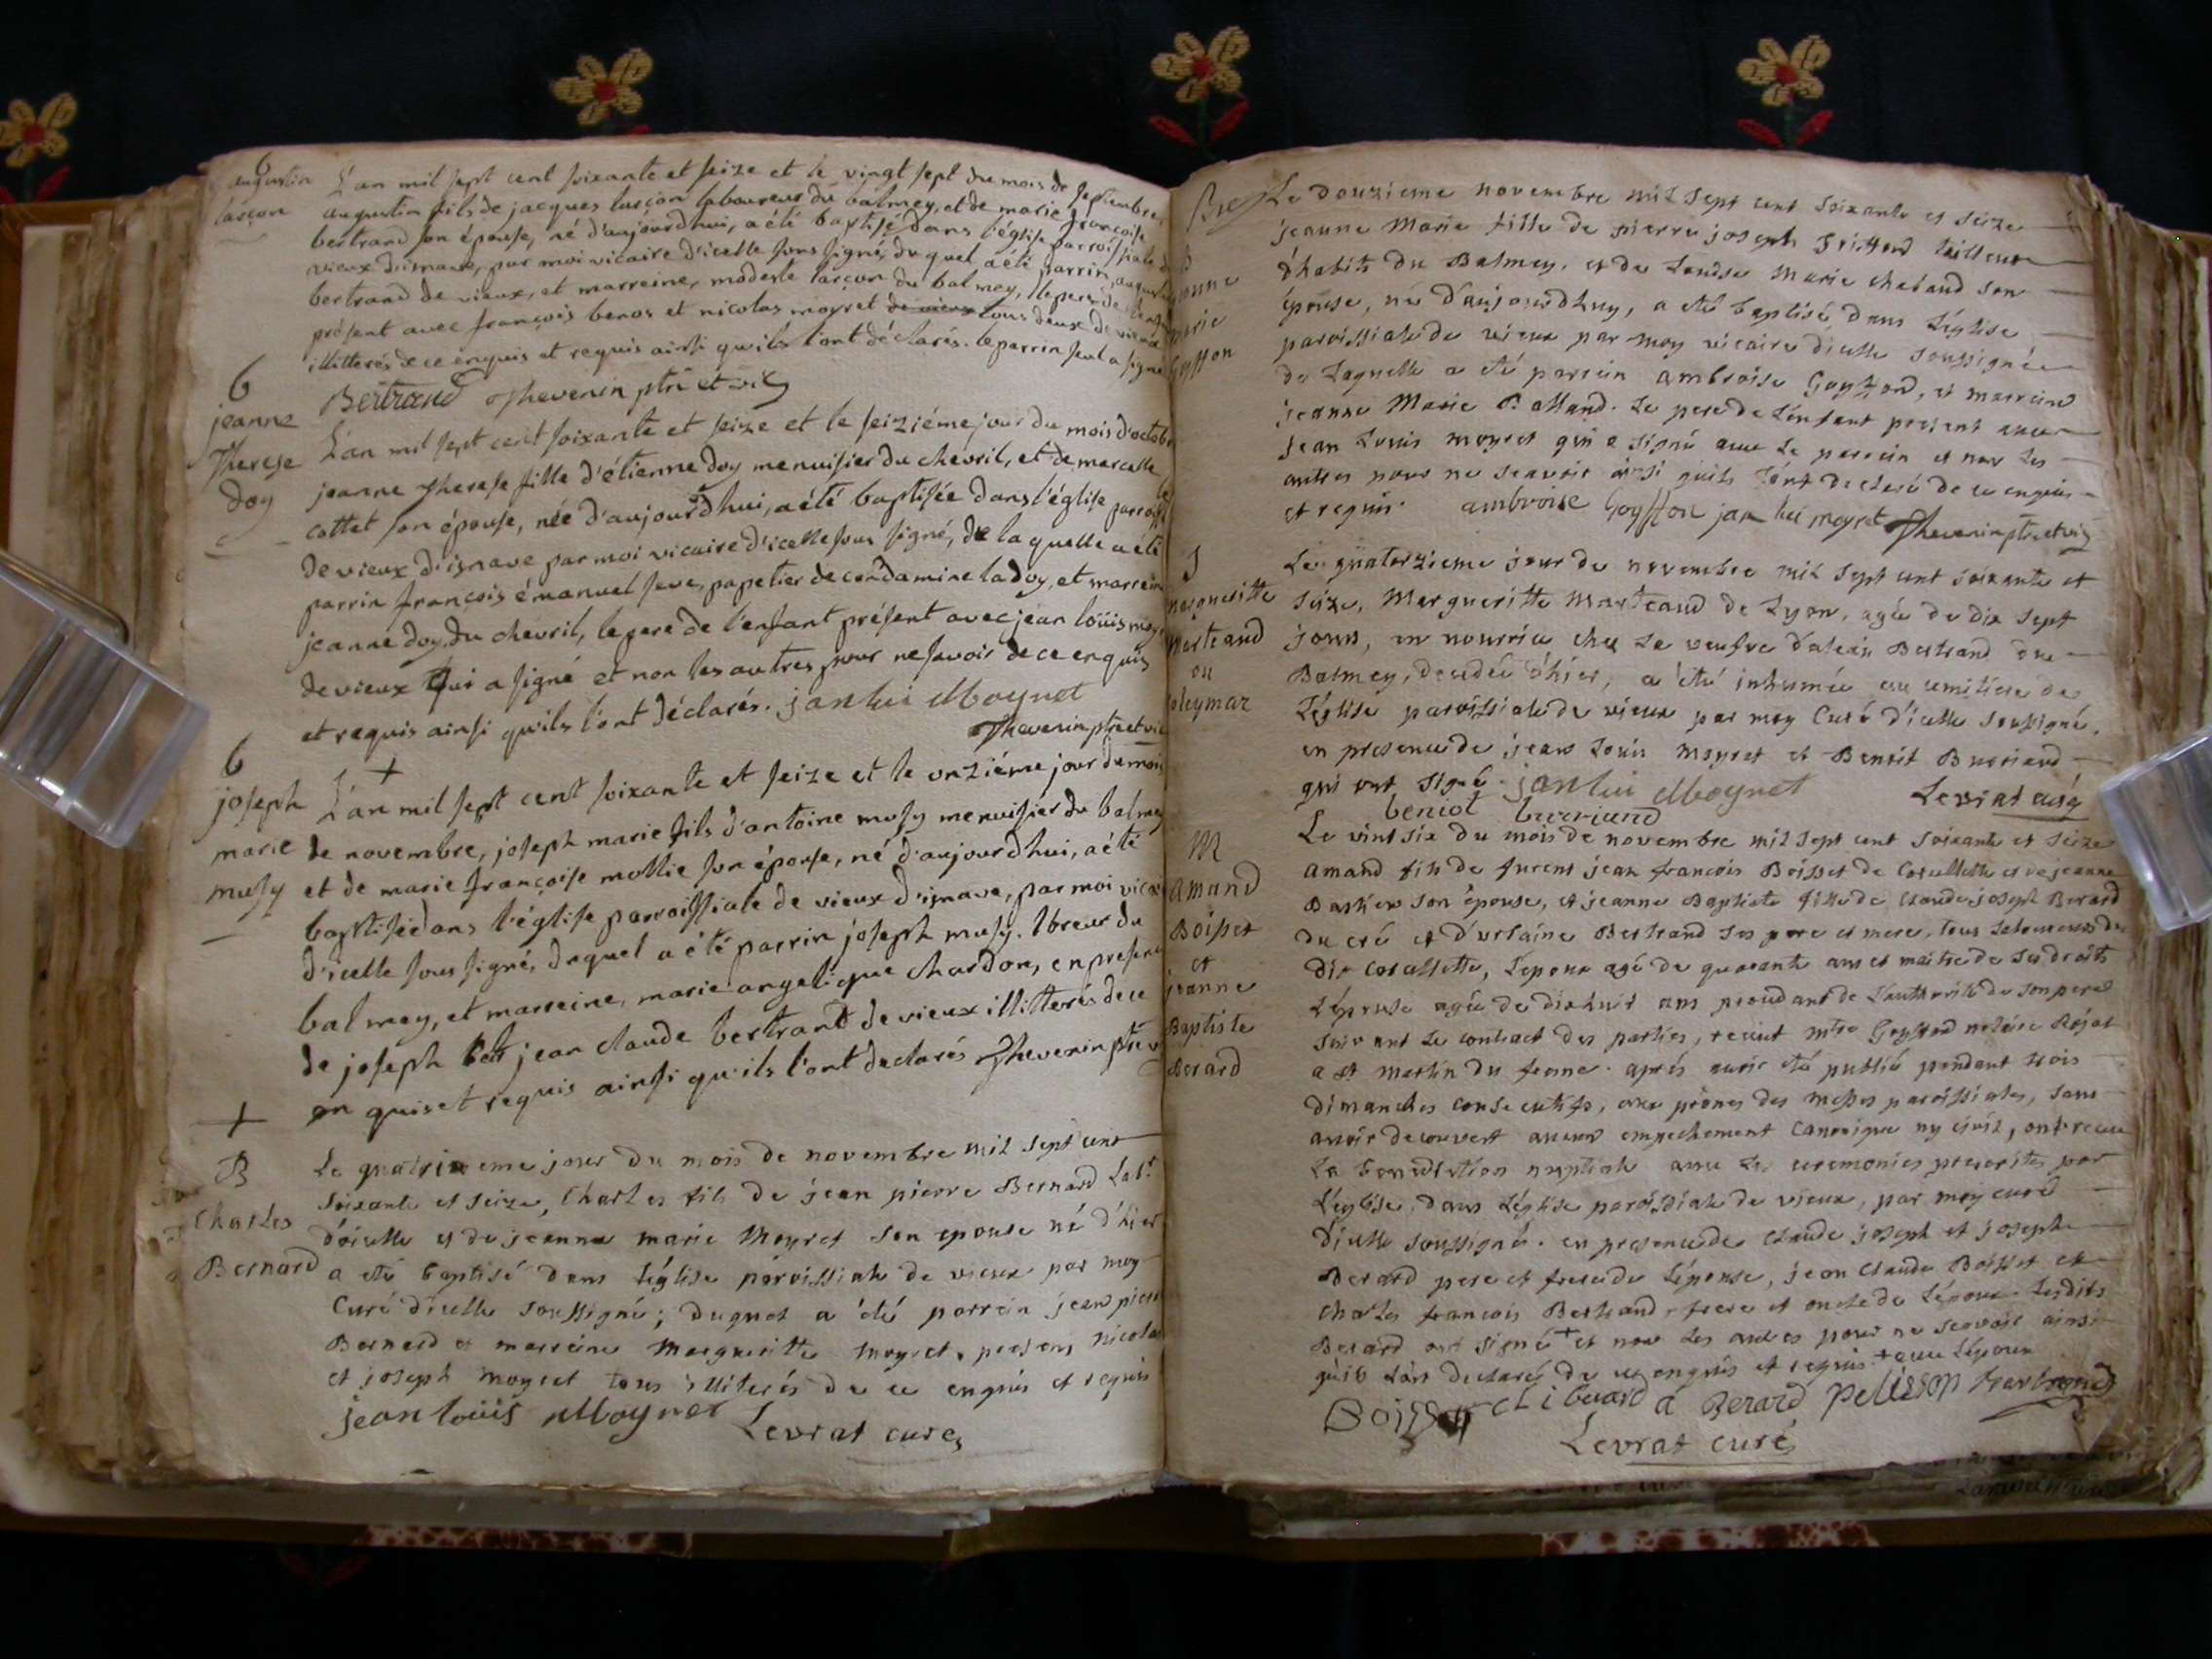 6
augustin
larçon
L'an mil sept cent soixante et seize et le vingt sept du mois de septembre
augustin fils de jacques larçon laboureur du balmey, et de marie françoise
bertrand son épouse, né d'aujourdhui, a été baptisé dans l'église parroissiale de
vieux disnave, par moi vicaire d'icelle sous signé, du quel a été parrin, augustin
bertrand de vieux, et marreine, modeste larçon du balmey, le pere de
présent avec françois benos et nicolas moyret de vieux tous deux de vieux
illitterés de ce enquis et requis ainsi quils l'ont déclarés. le parrin seul a signé
Bertrand Thevenin ptre et vic
6
jeanne
Therese
doy
L'an mil sept cent soixante et seize et le seiziéme jour du mois d'octob
jeanne therese fille d'étienne doy menuisier du chevril, et de marcelle
cottet son épouse, née d'aujourdhui, a été baptisée dans l'église parroiss
de vieux d'isnave par moi vicaire d'icelle sous signé, de la quelle a été
parrin françois émanuel seve, papetier de condamine ladoy, et marrein
jeanne doy, du chevril, le pere de l'enfant présent avec jean loüis moy
de vieux qui a signé et non les autres pour ne savoir de ce enquis
et requis ainsi qu'ils l'ont déclarés. jan lui Moynet
Thevenin ptre et vic
6
joseph
marie
musy
L'an mil sept cent soixante et seize et le onziéme jour du mois
de novembre, joseph marie fils d'antoine musy menuisier du balmey
et de marie françoise mollie son épouse, né d'aujourdhui, a été
baptisé dans l'église parroissiale de vieux d'isnave, par moi vicai
d'icelle sous signé, duquel a été parrin joseph musy. lbreur du
balmey, et marreine, marie angelique chardon, en presen
de joseph et jean claude bertrand de vieux illitterés de ce
en quis et requis ainsi qu'ils l'ont declarés Thevenin ptre v
B
Charles
Bernard
Le quatrixeme jour du mois de novembre mil sept cent
soixante et seize, Charles fils de jean pierre Bernard Labr
d'oiselle et de jeanne marie Moyret son epouse né d'hier
a été baptisé dans l'église paroissiale de vieux par moy
Curé d'icelle soussigné; duquel a été parrein jean pierre
Bernard et marreine Marguerite Moyret, presens nicolas
et joseph moyret tous illiterés de ce enquis et requis
jean loüis Moyret Levrat curé
Le douzieme novembre mil sept cent soixante et seize
jeanne Marie fille de pierre joseph Goiffond tailleur
d'habits du Balmey, et de Loudse Marie chaband son
épouse, née d'aujourdhuy, a été baptisé dans l'église
paroissiale de vieux par moy vicaire d'icelle soussigné
de Laquelle a été parrein ambroise Goyffond, et marreine
jeanne Marie Balland. Le pere de l'enfant present avec
jean Louis moyret qui a signé avec Le parrein et non les
autres pour ne scavoir ainsi quils l'ont declaré de ce enquis
et requis. ambroise Goyffon jan lui moyret Thevenin ptre et vic
S
Margueritte
Marteand
ou
pleymar
Le quatorzieme jour de novembre mil sept cent soixante et
seize, Margueritte Marteand de Lyon, agée de dix sept
jours, en nourrice chez Le veufve d'alexis Bertrand du
Balmey, decedée d'hier, a été inhumée au cemitiere de
L'église paroissiale de vieux par moy Curé d'icelle soussigné.
en presence de jean Louis moyret et Benoit Burriand
qui ont signé. jan lui Moynet
beniot burriand Levrat curé
M
Amand
Boisset
et
jeanne
Baptiste
Berard
Le vint six du mois de novembre mil sept cent soixante et seize
amand fils de furent jean francois Boisset de Corcellette et de jeanne
Barbier son épouse, et jeanne Baptiste fille de Claude joseph Berard
du cré et d'urlaine Bertrand ses pere et mere, tous laboureurs du
dit corcellette, l'epoux agé de quarante ans et maitre de ses droits
L'epouse agée de dixhuit ans procedant de l'authorité de son pere
suivant le contract des parties, receut mtre Goyffond notaire Royal
a st martin du frenne. aprés avoir été publié pendant trois
dimanches consecutifs, aux prônes des messes paroissiales, sans
avoir decouvert aucun empechement Canonique ny civil, ont receu
La benediction nuptiale avec les ceremonies prescrites par
L'église, dans l'église paroissiale de vieux, par moy curé
d'icelle soussigné. en presence de claude joseph et joseph
Berard pere et frere de l'épouse, jean claude Boisset et
charles francois Bertrand, frere et oncle de l'époux. Lesdits
Berard ont signé + et non les autres pour ne scavoir ainsi
qu'ils l'ont declaré de ce enquis et requis. + avec l'époux
Boisset cl i beuard a Berard pelisson
Levrat curé